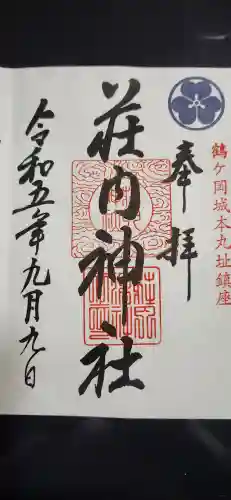 鶴ケ岡城本丸址鎮座
奉拝
荘内神社
令和五年九月九日